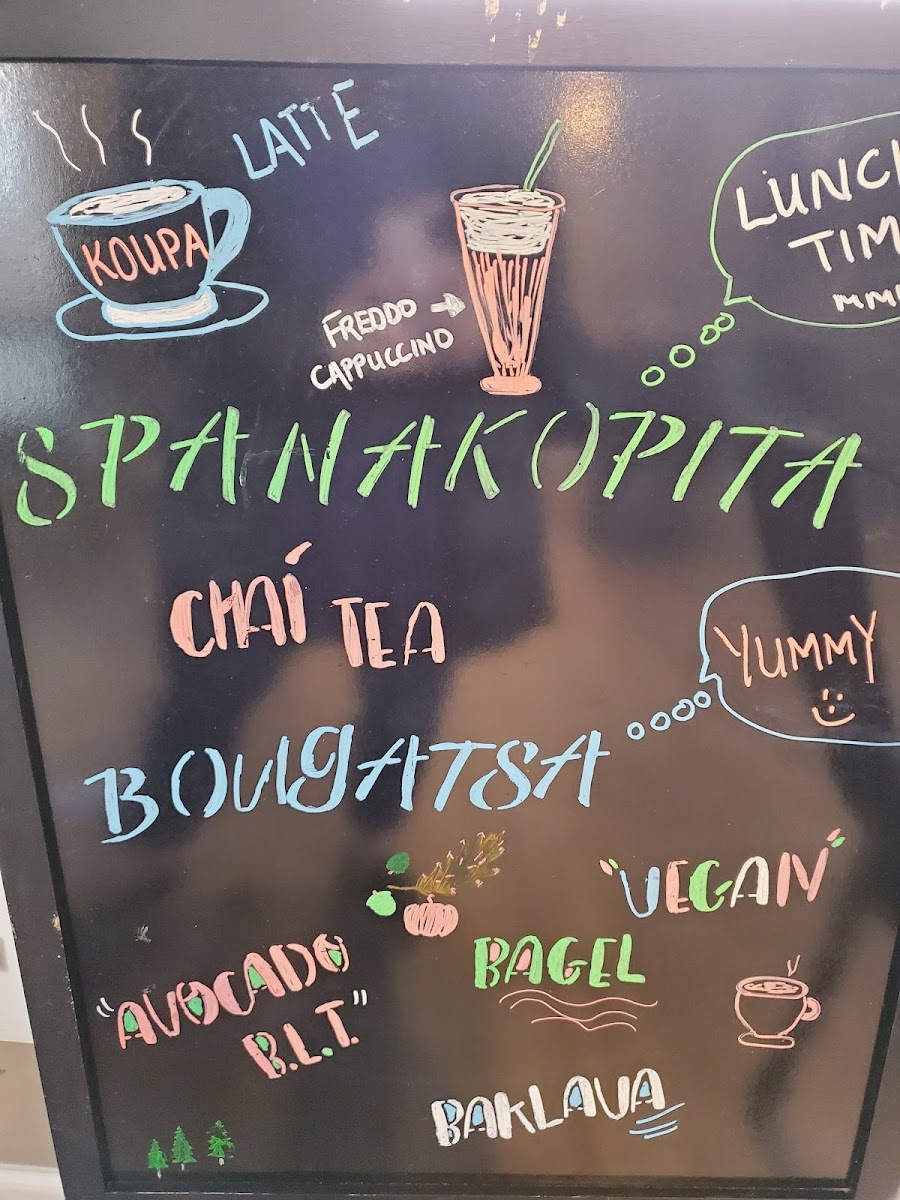 LATTE
KOUPA
FREDDO
CAPPUCCINO
LUNCH
TIM
MMM
SPANAKOPITA
CHAÍ TEA
YUMMY
BOUGATSA
"VEGAN"
BAGEL
"AVOCADO
B.L.T."
BAKLAVA